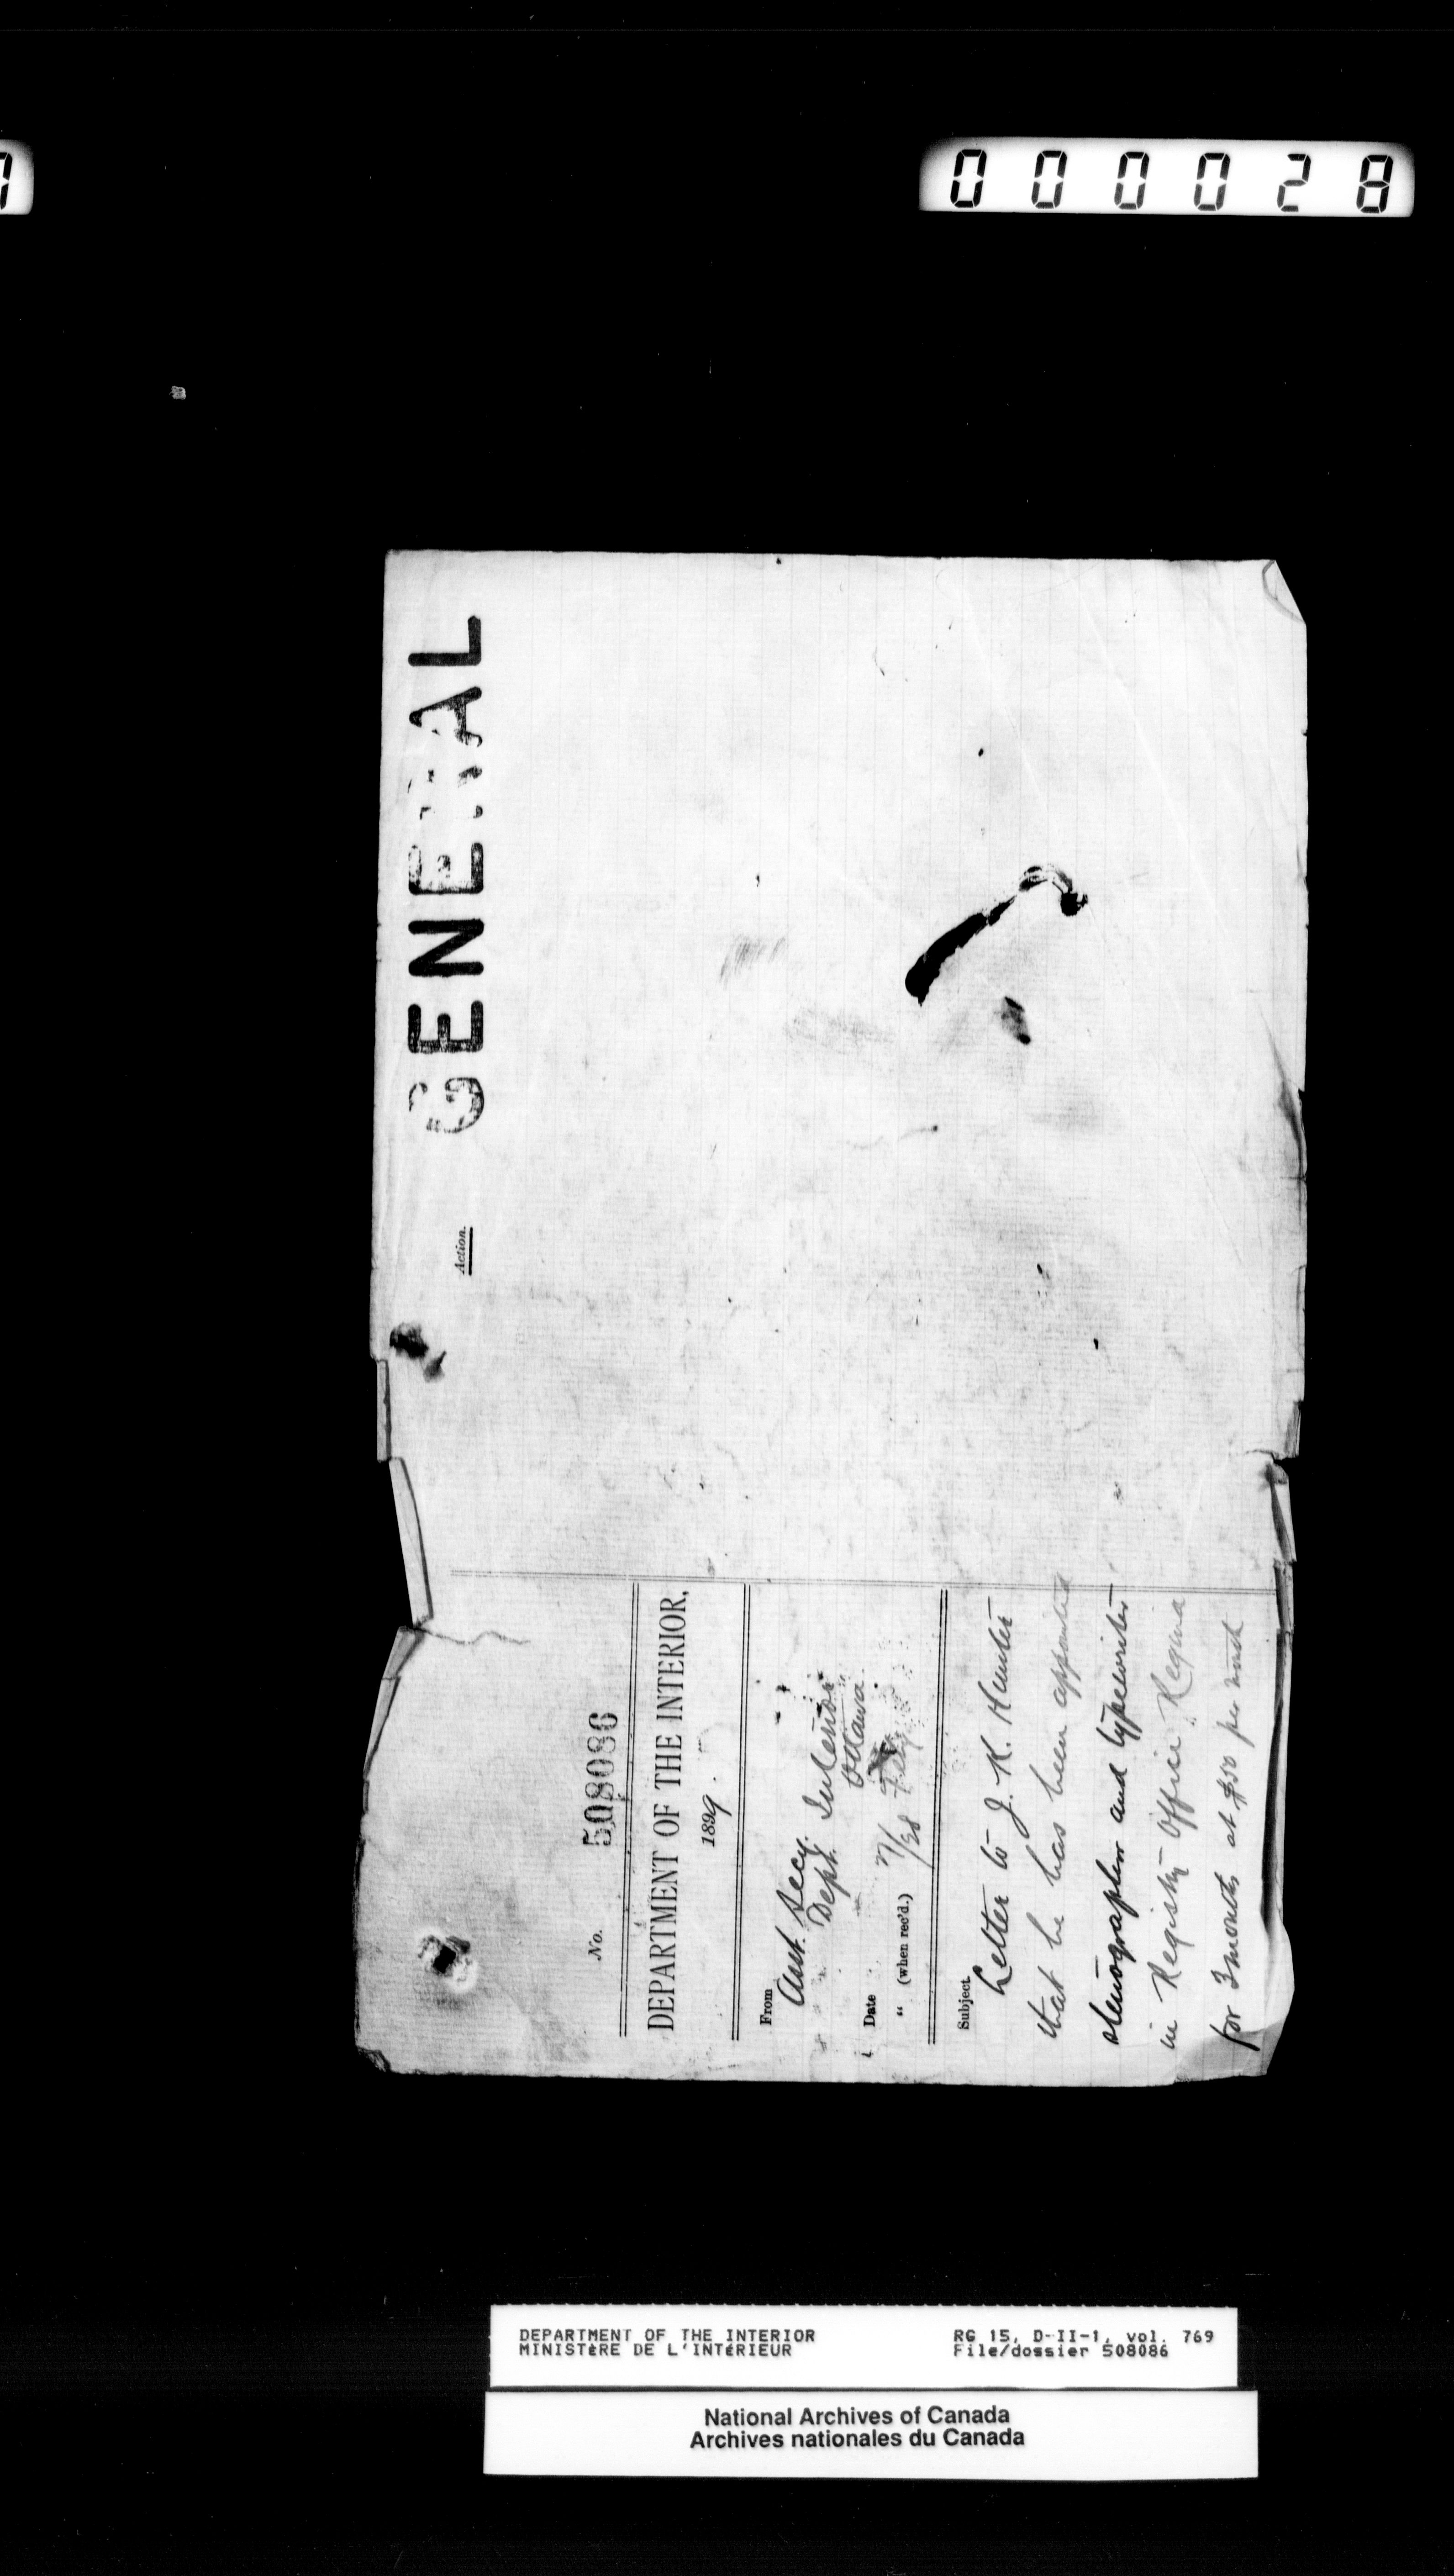 000028
GENERAL
Action.
No. 508086
DEPARTMENT OF THE INTERIOR,
1899.
From
Asst. Secy.
Dept. Interior
Ottawa
Date 7/28 Feby
" (when rec'd.)
Subject.
Letter to J. K. Hunter
that he has been appointed
stenographer and typewriter
in Registry Office Regina
for 3 months at $50 per month
DEPARTMENT OF THE INTERIOR
MINISTÈRE DE L'INTÉRIEUR
RG 15, D-II-1, vol. 769
File/dossier 508086
National Archives of Canada
Archives nationales du Canada